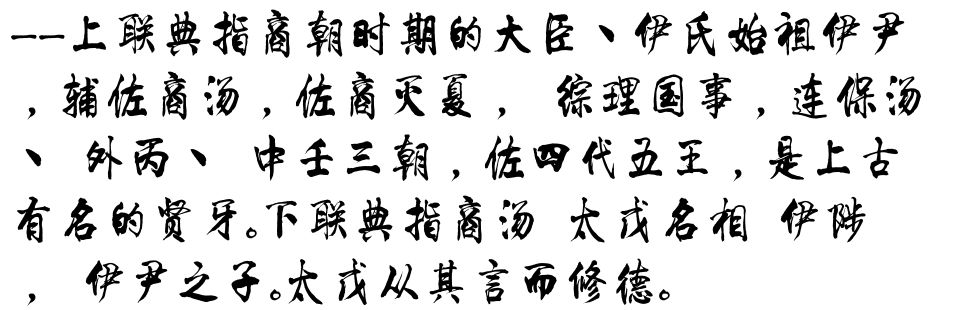 --上联典指商朝时期的大臣、伊氏始祖伊尹
，辅佐商汤，佐商灭夏， 综理国事，连保汤
、 外丙、 中壬三朝，佐四代五王，是上古
有名的贤牙。下联典指商汤 太戊名相 伊陟
， 伊尹之子。太戊从其言而修德。